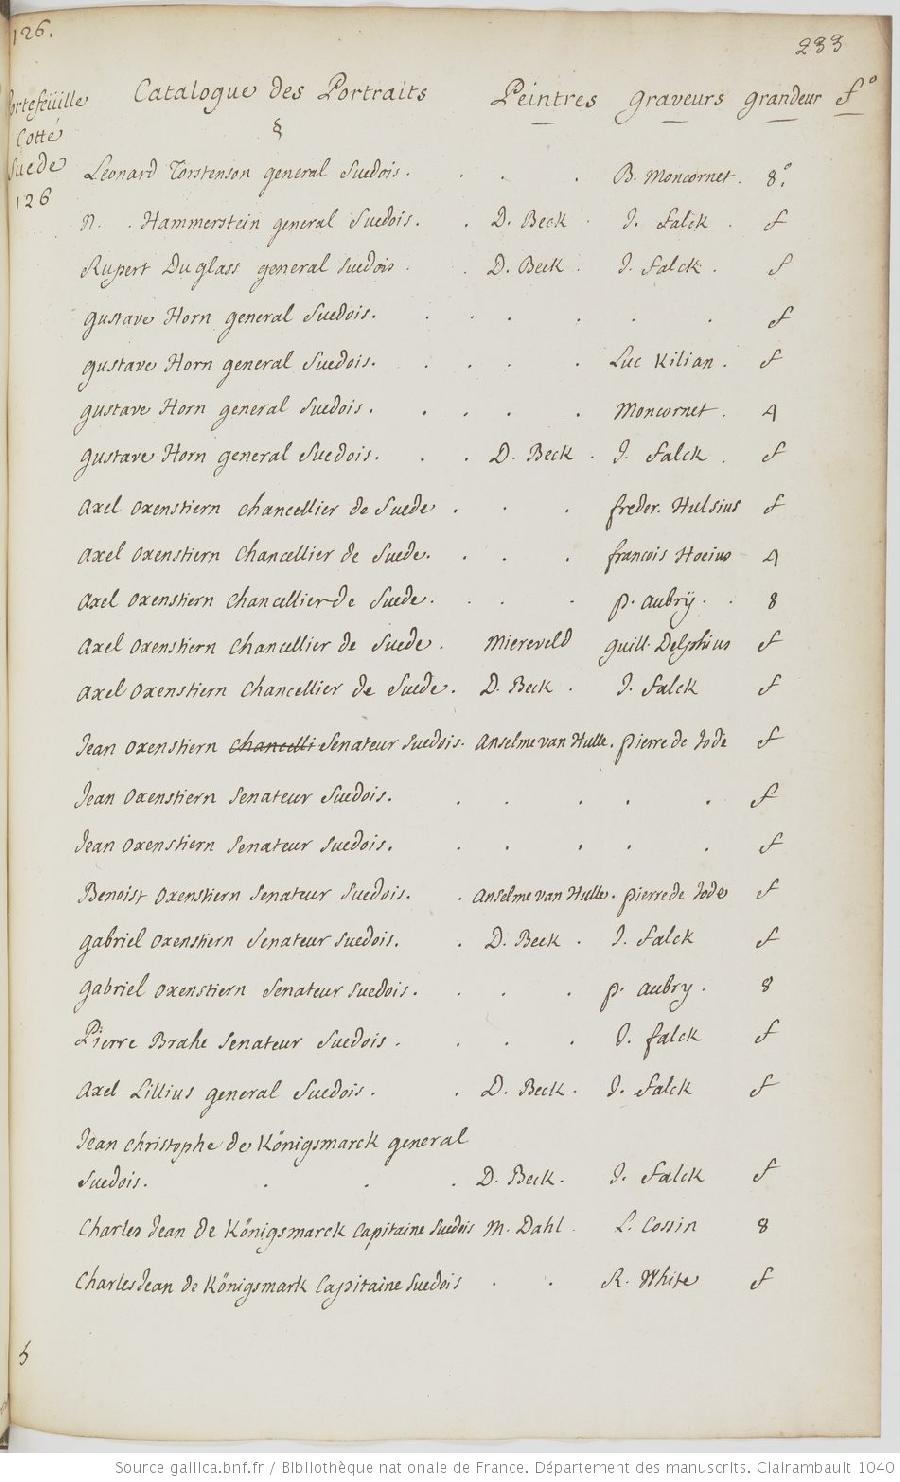 126.
233
Portefeüille
Cotté
Suede
126
Catalogue des Portraits Peintres graveurs grandeur f°
§
Leonard Torstenson general Suedois. B. Moncornet. 8°.
N. . Hammerstein general Suedois. D. Beck. J. Falck. f
Rupert Duglass general Suedois. D. Beck. J. Falck. f
gustave Horn general Suedois. f
gustave Horn general Suedois. Luc Kilian. f
gustave Horn general Suedois. Moncornet. 4
gustave Horn general Suedois. D. Beck. J. Falck. f
axel oxenstiern chancellier de Suede. freder. Hulsius f
axel oxenstiern Chancellier de Suede. francois Hoeius 4
axel oxenstiern Chancellier de Suede. p. aubrÿ. 8
axel oxenstiern Chancellier de Suede. Miereveld guill. Delphius f
axel oxenstiern Chancellier de Suede. D. Beck. J. Falck f
Jean oxenstiern Chancelli Senateur Suedois. Anselme van Hulle. pierre de Jode f
Jean oxenstiern Senateur Suedois. f
Jean oxenstiern Senateur Suedois. f
Benoist oxenstiern Senateur Suedois. Anselme van Hulle. pierre de Jode f
gabriel oxenstiern Senateur Suedois. D. Beck. J. Falck f
gabriel oxenstiern Senateur Suedois. p. aubry. 8
Pierre Brahe Senateur Suedois. J. falck f
axel Lillius general Suedois. D. Beck. J. Falck f
Jean christophe de Königsmarck general
Suedois. D. Beck. J. Falck f
Charles Jean de Königsmarck Capitaine Suedois M. Dahl. L. Cossin 8
Charles Jean de Königsmark Capitaine Suedois R. White f
Source gallica.bnf.fr / Bibliothèque nationale de France. Département des manuscrits. Clairambault 1040